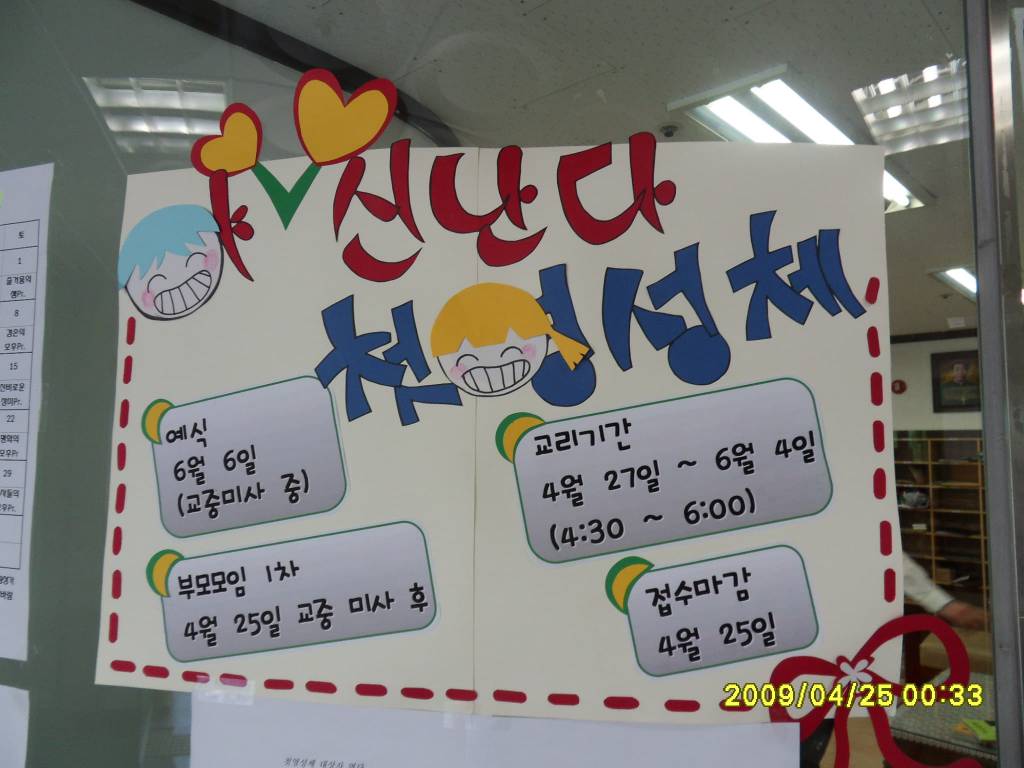 야 신난다
첫영성체
예식
6월 6일
(교중미사 중)
교리기간
4월 27일 ~ 6월 4일
(4:30 ~ 6:00)
부모모임 1차
4월 25일 교중 미사 후
접수마감
4월 25일
토
1
8
15
22
29
첫영성체 대상자 명단
2009/04/25 00:33